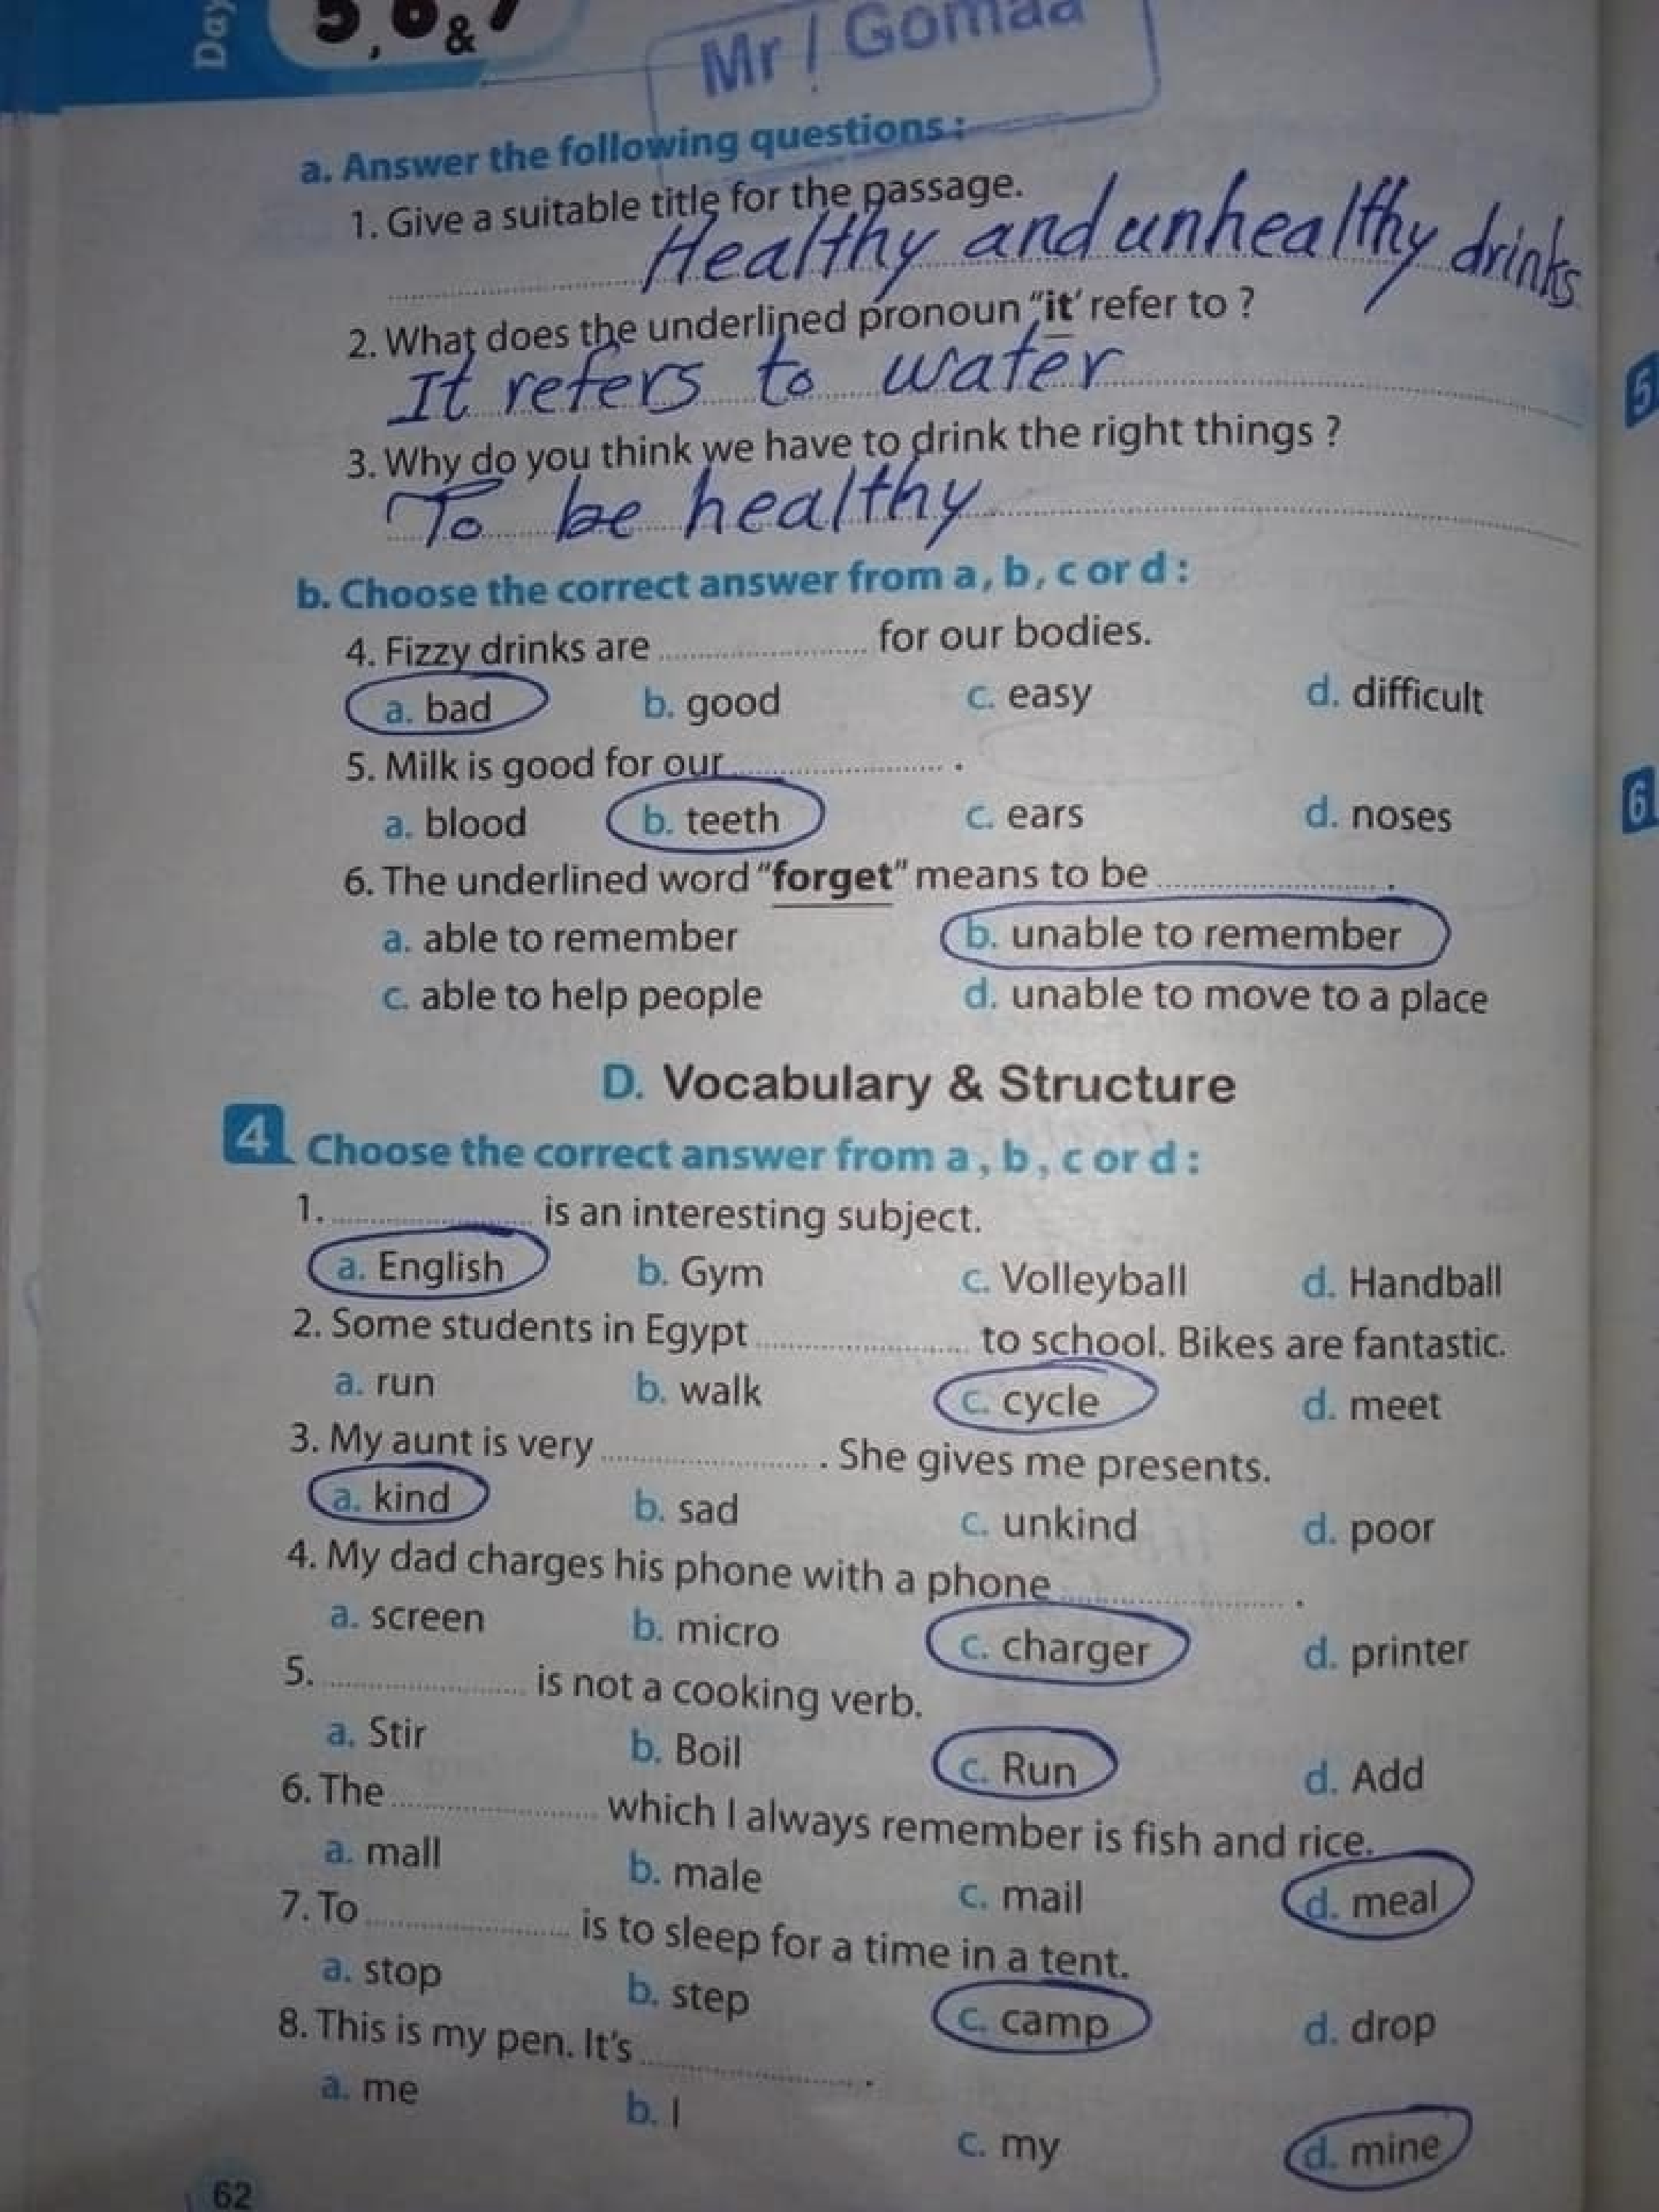 Day
5, 6 & 7
Mr / Gomaa
a. Answer the following questions :
1. Give a suitable title for the passage.
Healthy and unhealthy drinks
2. What does the underlined pronoun "it' refer to ?
It refers to water
3. Why do you think we have to drink the right things ?
To be healthy
b. Choose the correct answer from a , b , c or d :
4. Fizzy drinks are .................... for our bodies.
a. bad b. good c. easy d. difficult
5. Milk is good for our .................... .
a. blood b. teeth c. ears d. noses
6. The underlined word "forget" means to be .................... .
a. able to remember b. unable to remember
c. able to help people d. unable to move to a place
D. Vocabulary & Structure
4 Choose the correct answer from a , b , c or d :
1. .................... is an interesting subject.
a. English b. Gym c. Volleyball d. Handball
2. Some students in Egypt .................... to school. Bikes are fantastic.
a. run b. walk c. cycle d. meet
3. My aunt is very .................... . She gives me presents.
a. kind b. sad c. unkind d. poor
4. My dad charges his phone with a phone .................... .
a. screen b. micro c. charger d. printer
5. .................... is not a cooking verb.
a. Stir b. Boil c. Run d. Add
6. The .................... which I always remember is fish and rice.
a. mall b. male c. mail d. meal
7. To .................... is to sleep for a time in a tent.
a. stop b. step c. camp d. drop
8. This is my pen. It's .................... .
a. me b. I c. my d. mine
62
5
6